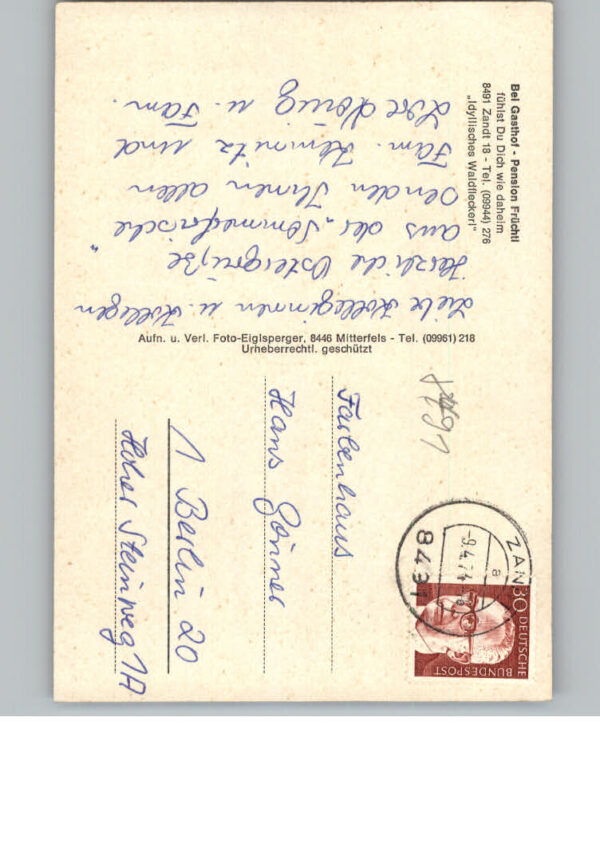 Bei Gasthof - Pension Früchtl
fühlst Du Dich wie daheim
8491 Zandt 18 - Tel. (09944) 276
„Idyllisches Waldfleckerl"
Liebe Kolleginnen u. Kollegen
Herzliche Ostergrüße
aus der „Sommerfrische"
senden Ihnen allen
Fam. und
u. Fam.
Aufn. u. Verl. Foto-Eiglsperger, 8446 Mitterfels - Tel. (09961) 218
Urheberrechtl. geschützt
8491
ZAN
a
-9.4.74
8431
30
DEUTSCHE
BUNDESPOST
Farbenhaus
Hans Gönner
1 Berlin 20
Hoher Steinweg 1A